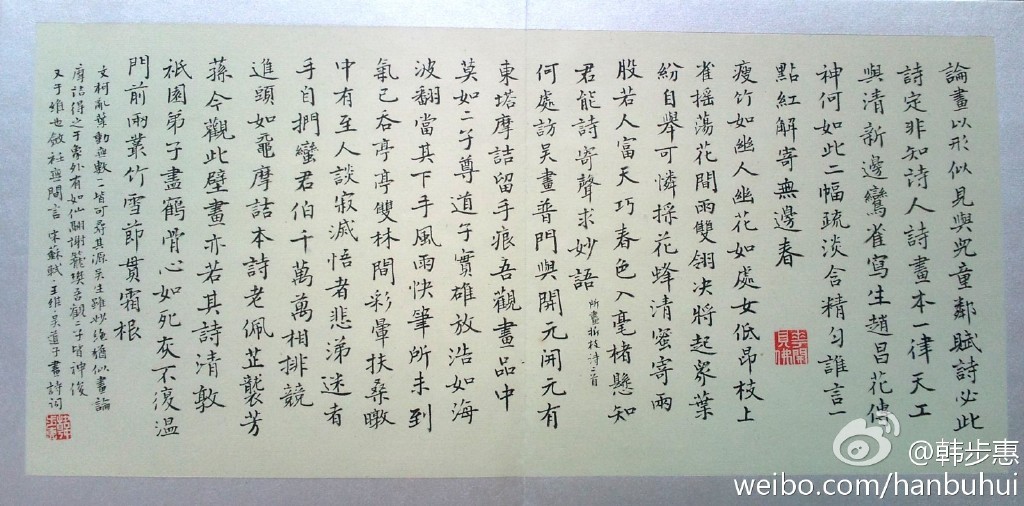 論畫以形似見與兒童鄰賦詩必此
詩定非知詩人詩畫本一律天工
與清新邊鸞雀寫生趙昌花傳
神何如此二幅疏淡含精勻誰言一
點紅解寄無邊春
瘦竹如幽人幽花如處女低昂枝上
雀搖蕩花間雨雙翎决將起眾葉
紛自舉可憐採花蜂清蜜寄兩
股若人富天巧春色入毫楮懸知
君能詩寄聲求妙語 所畫折枝詩二首
何處訪吳畫普門與開元開元有
東塔摩詰留手痕吾觀畫品中
莫如二子尊道子實雄放浩如海
波翻當其下手風雨快筆所未到
氣已吞亭亭雙林間彩暈扶桑暾
中有至人談寂滅悟者悲涕迷者
手自捫蠻君伯千萬萬相排競
進頭如黿摩詰本詩老佩芷襲芳
蓀今觀此壁畫亦若其詩清敦
祇園弟子盡鶴骨心如死灰不復溫
門前兩叢竹雪節貫霜根
交柯亂葉動無數一一皆可尋其源吳生雖妙絕猶似畫論
摩詰得之于象外有如仙翮謝籠樊吾觀二子皆神俊
又于維也斂衽無間言 宋蘇軾·王維·吳道子畫詩詞
@韩步惠
weibo.com/hanbuhui